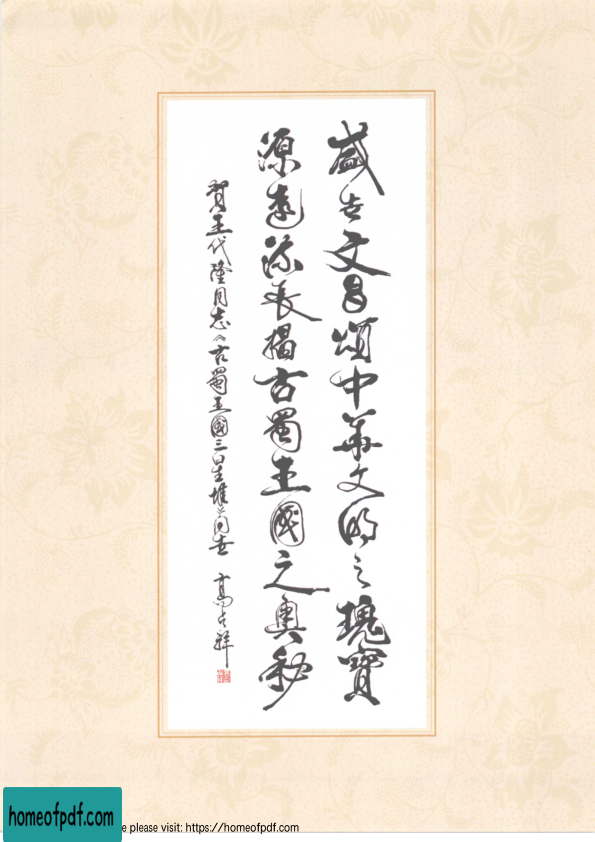 盛世文昌頌中華文明之瑰寶
源遠流長揭古蜀王國之奧秘
賀王代隆同志《古蜀王國三星堆》問世
高占祥
homeofpdf.com
e please visit: https://homeofpdf.com